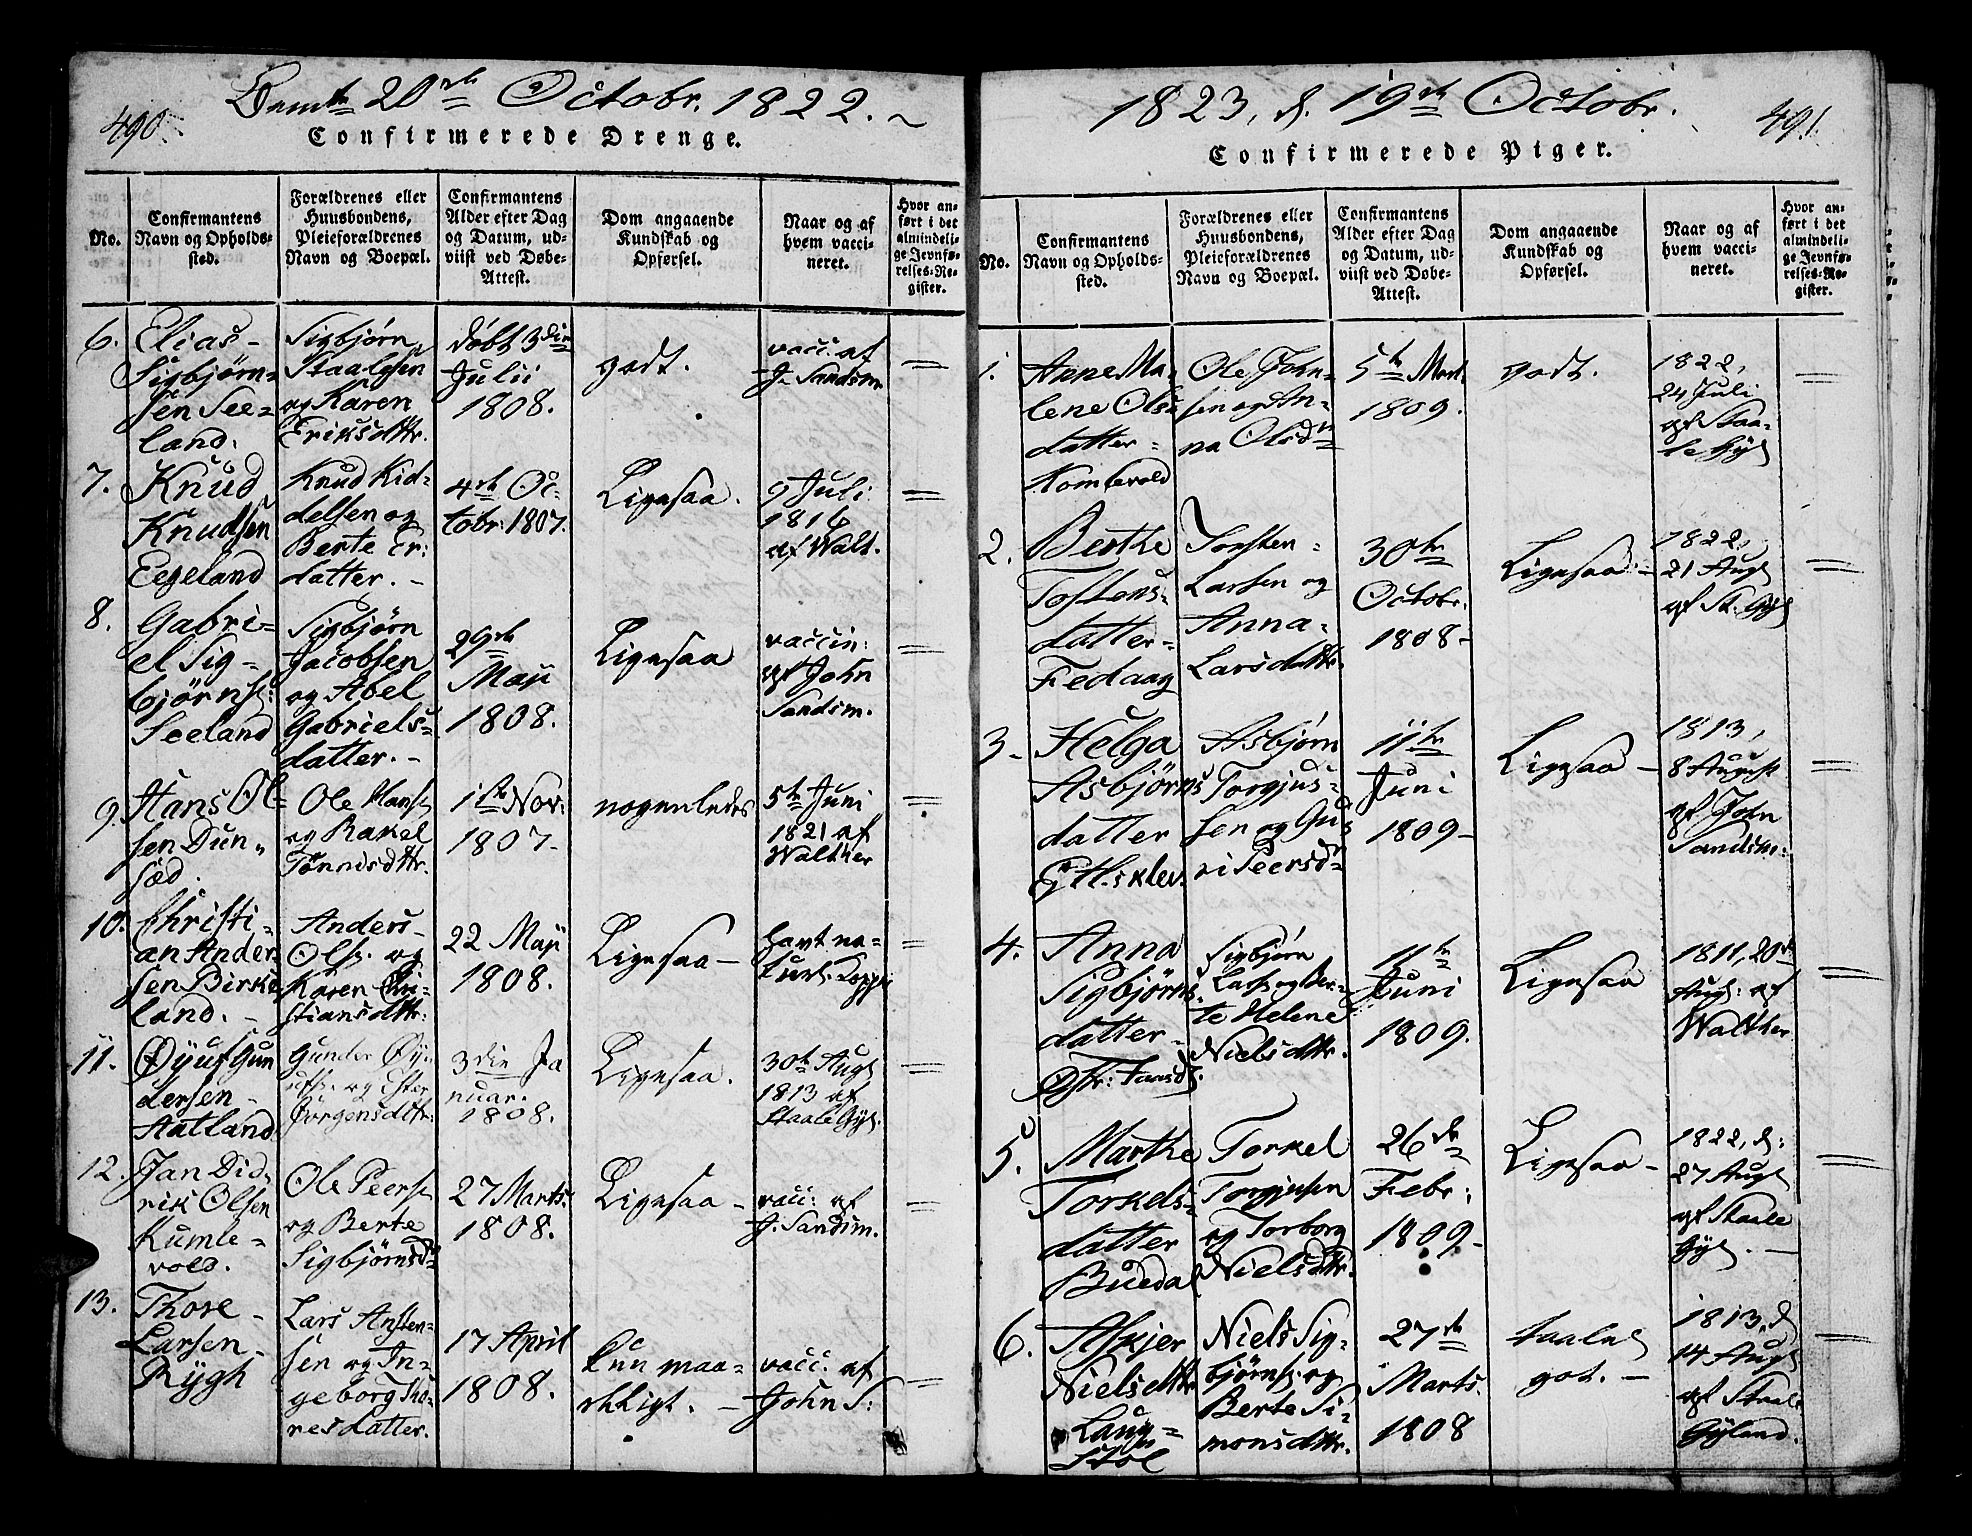 490.
20de Octobr. 1822.
Confirmerede Drenge.
No.
Confirmantens
Navn og Opholds-
sted.
Forældrenes eller
Huusbondens,
Pleieforældrenes
Navn og Boepæl.
Confirmantens
Alder efter Dag
og Datum, ud-
viist ved Døbe-
Attest.
Dom angaaende
Kundskab og
Opførsel.
Naar og af
hvem vacci-
neret.
Hvor an-
ført i det
almindeli-
ge Jevnfø-
relses-Re-
gister.
6.
Elias
Sigbjørn-
sen See-
land.
Sigbjørn
Staalesen
og Karen
Eriksdttr.
døbt 3die
Julii
1808.
godt.
vacc: af
J. Sandsm.
=
7.
Knud
Knudsen
Eegeland
Knud Kid-
delsen og
Berte Er:
datter. -
4de Oc-
tobr: 1807.
Ligesaa.
9 Juli
1816
af Walt.
=
8.
Gabri-
el Sig-
bjørns:
Seeland
Sigbjørn
Jacobsen
og Abel
Gabriels-
datter. -
29de
Maji
1808.
Ligesaa
vaccin:
af John
Sandsm.
=
9.
Hans Ol-
sen Dun-
sæd.
Ole Hans
og Rakel
Tønnesdttr.
1ste Nov:
1807.
nogenledes
5te Juni
1821 af
Walther
=
10.
Christi-
an Ander
sen Birke
land. -
Anders
Ols: og
Karen Chri-
stiansdttr:
22 Maji
1808.
Ligesaa -
havt na-
turl. Kopper
=
11.
Øyuf Gun
dersen
Aatland
Gunder Øy-
ufs: og Ester
Jørgensdttr:
3die Ja
nuar.
1808.
Ligesaa.
30te Aug
1813 af
Staale Gyl.
=
12.
Jan Did-
rik Olsen
Kumle-
vold.
Ole Peers
og Berte
Sigbjørnsd
27 Marts
1808.
Ligesaa -
vacc: af
J. Sandsm.
=
13.
Thore
Larsen
Rygh
Lars Ansten-
sen og In-
geborg Tho-
resdatter.
17 April
1808.
kun maa-
deligt. -
vacc: af
John S:
=
1823, d. 19de Octobr.
491.
Confirmerede Piger.
No.
Confirmantens
Navn og Opholds-
sted.
Forældrenes eller
Huusbondens,
Pleieforældrenes
Navn og Boepæl.
Confirmantens
Alder efter Dag
og Datum, ud-
viist ved Døbe-
Attest.
Dom angaaende
Kundskab og
Opførsel.
Naar og af
hvem vacci-
neret.
Hvor an-
ført i det
almindeli-
ge Jevnfø-
relses-Re-
gister.
1.
Anne Ma-
lene Ols
datter
Komlevold
Ole John-
sen og An-
na Olsdtr
5te Mart.
1809.
godt.
1822,
24 Juli
af Staa-
le Gyl
=
2.
Berthe
Tostens-
datter
Fedaag
Torsten
Larsen og
Anna
Larsdattr.
30te
Octobr.
1808-
Ligesaa -
1822,
21 Aug
af St. Gyl
=
3-
Helga
Asbjørns
datter
Etlisklev.
Asbjørn
Torgjus-
sen og Gu-
ri Peersdr
11te
Juni
1809-
Ligesaa -
1813,
8 August
af John
Sandsm:
=
4.
Anna
Sigbjørns
datter
Sigbjørn
Lars: og Ber-
te Helene
Nielsdttr.
11te
Juni
1809.
Ligesaa
1811, 20de
Aug: af
Walther
=
5.
Marthe
Torkels-
datter
Buedal
Torkel
Torgjusen
og Torborg
Nielsdttr.
26de
Febr:
1809-
Ligesaa -
1822, d:
27 Aug
af Staale
Gyl. -
=
6.
Askjer
Nielsdttr
Laug-
Stol
Niels Sig-
bjørns: og
Berte Si-
monsdttr.
27de
Marts.
1808
taalel
got. -
1813, d
14 Aug
af Staale
Gyland.
=